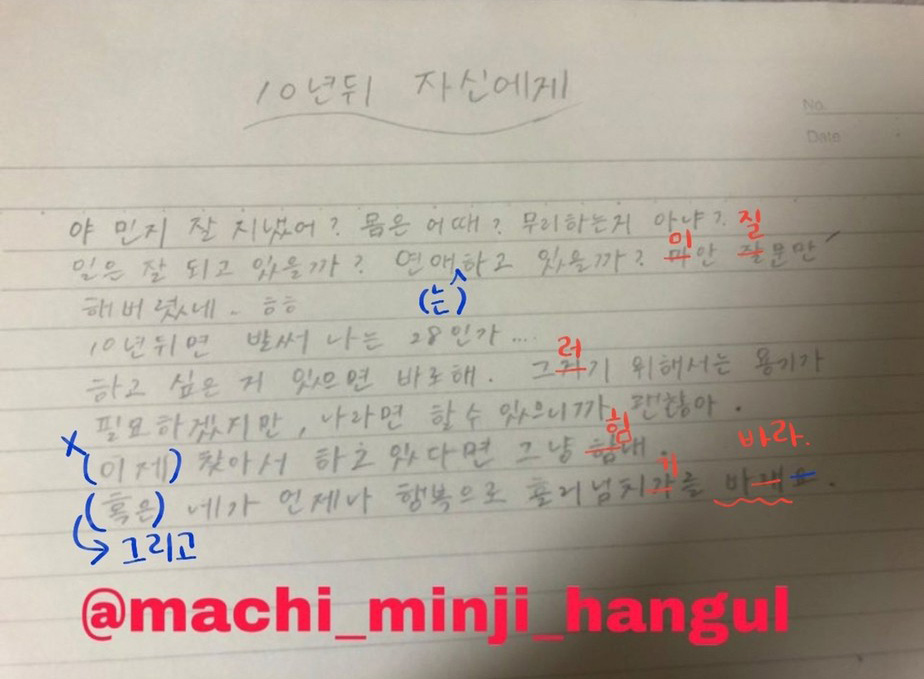 10년뒤 자신에게
No.
Date
야 민지 잘 지냈어? 몸은 어때? 무리하는거 아냐? 질
일은 잘 되고 있을까? 연애하고 있을까? 미안 잘문만
해버렸네.. ㅎㅎ (는)
10년뒤면 발써 나는 28인가....
하고 싶은 거 있으면 바로해. 그러기 위해서는 용기가
필요하겠지만, 나라면 할 수 있으니까 괜찮아.
X (이제) 찾아서 하고 있다면 그냥 힘내. 바라.
(혹은) 네가 언제나 행복으로 흘러넘치기를 바래요.
그리고
@machi_minji_hangul